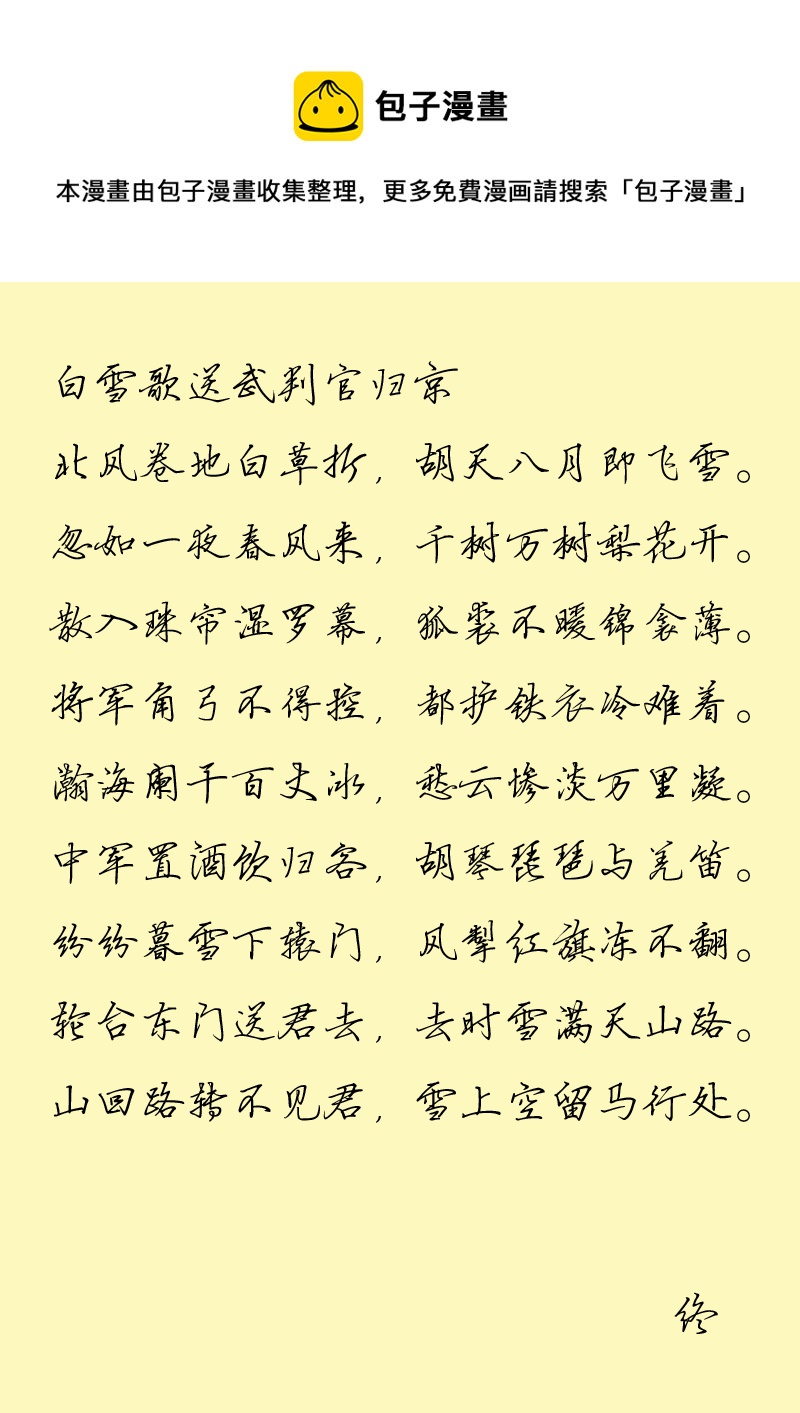 包子漫畫
本漫畫由包子漫畫收集整理，更多免費漫画請搜索「包子漫畫」
白雪歌送武判官归京
北风卷地白草折，胡天八月即飞雪。
忽如一夜春风来，千树万树梨花开。
散入珠帘湿罗幕，狐裘不暖锦衾薄。
将军角弓不得控，都护铁衣冷难着。
瀚海阑干百丈冰，愁云惨淡万里凝。
中军置酒饮归客，胡琴琵琶与羌笛。
纷纷暮雪下辕门，风掣红旗冻不翻。
轮台东门送君去，去时雪满天山路。
山回路转不见君，雪上空留马行处。
终